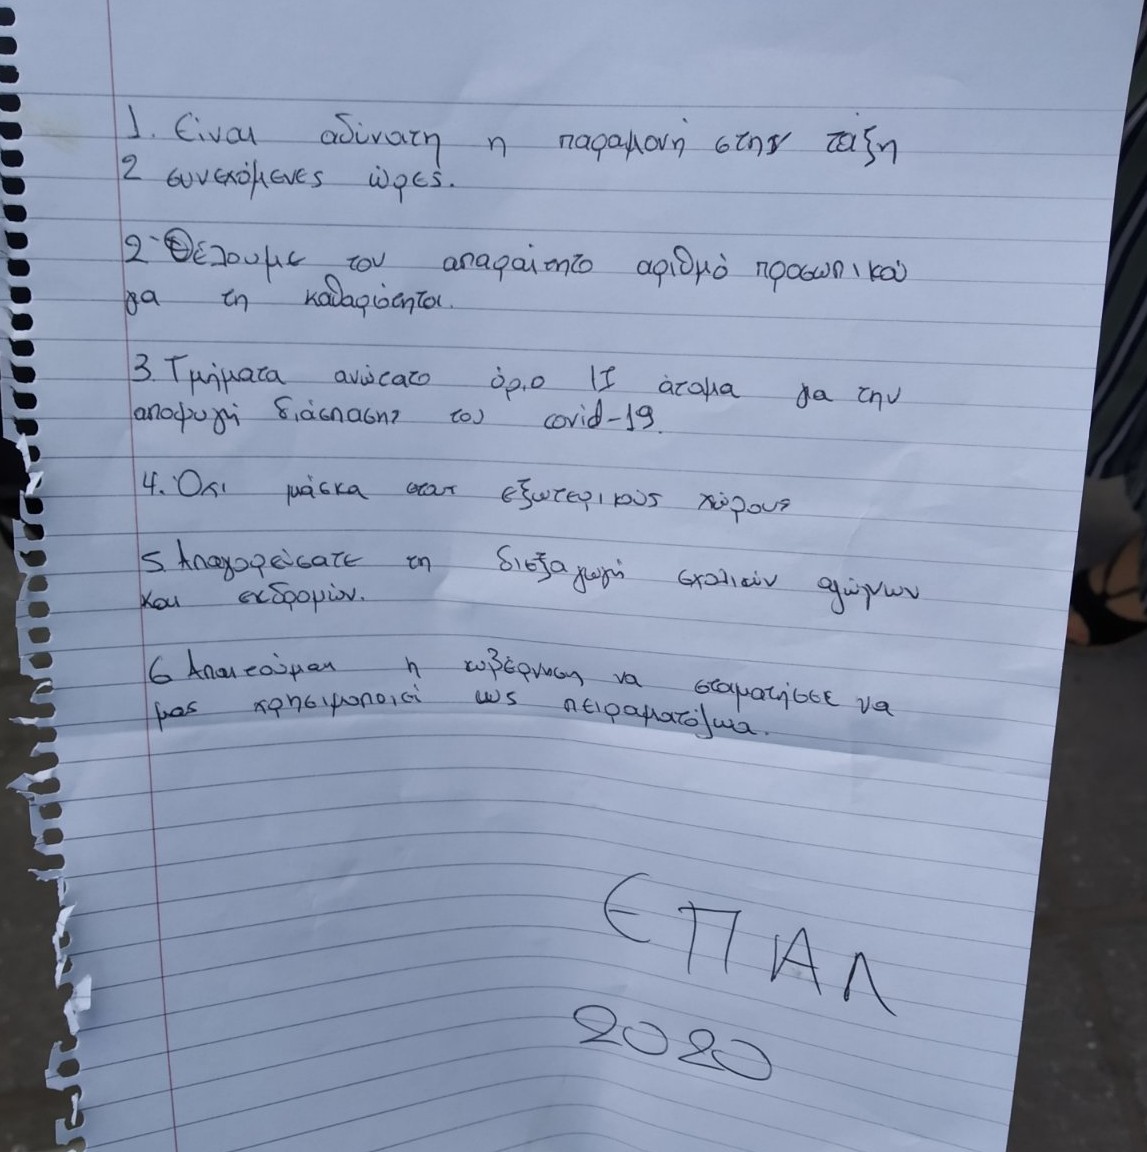 1. Είναι αδύνατη η παραμονή στην τάξη
2 συνεχόμενες ώρες.
2. Θέλουμε τον απαραίτητο αριθμό προσωπικού
για τη καθαριότητα.
3. Τμήματα ανώτατο όριο 15 άτομα για την
αποφυγή διάσπασης του covid-19.
4. Όχι μάσκα στους εξωτερικούς χώρους
5. Απαγορεύσατε τη διεξαγωγή σχολικών αγώνων
και εκδρομών.
6. Απαιτούμαι η κυβέρνηση να σταματήσει να
μας χρησιμοποιεί ως πειραματόζωα.
ΕΠΑΛ
2020